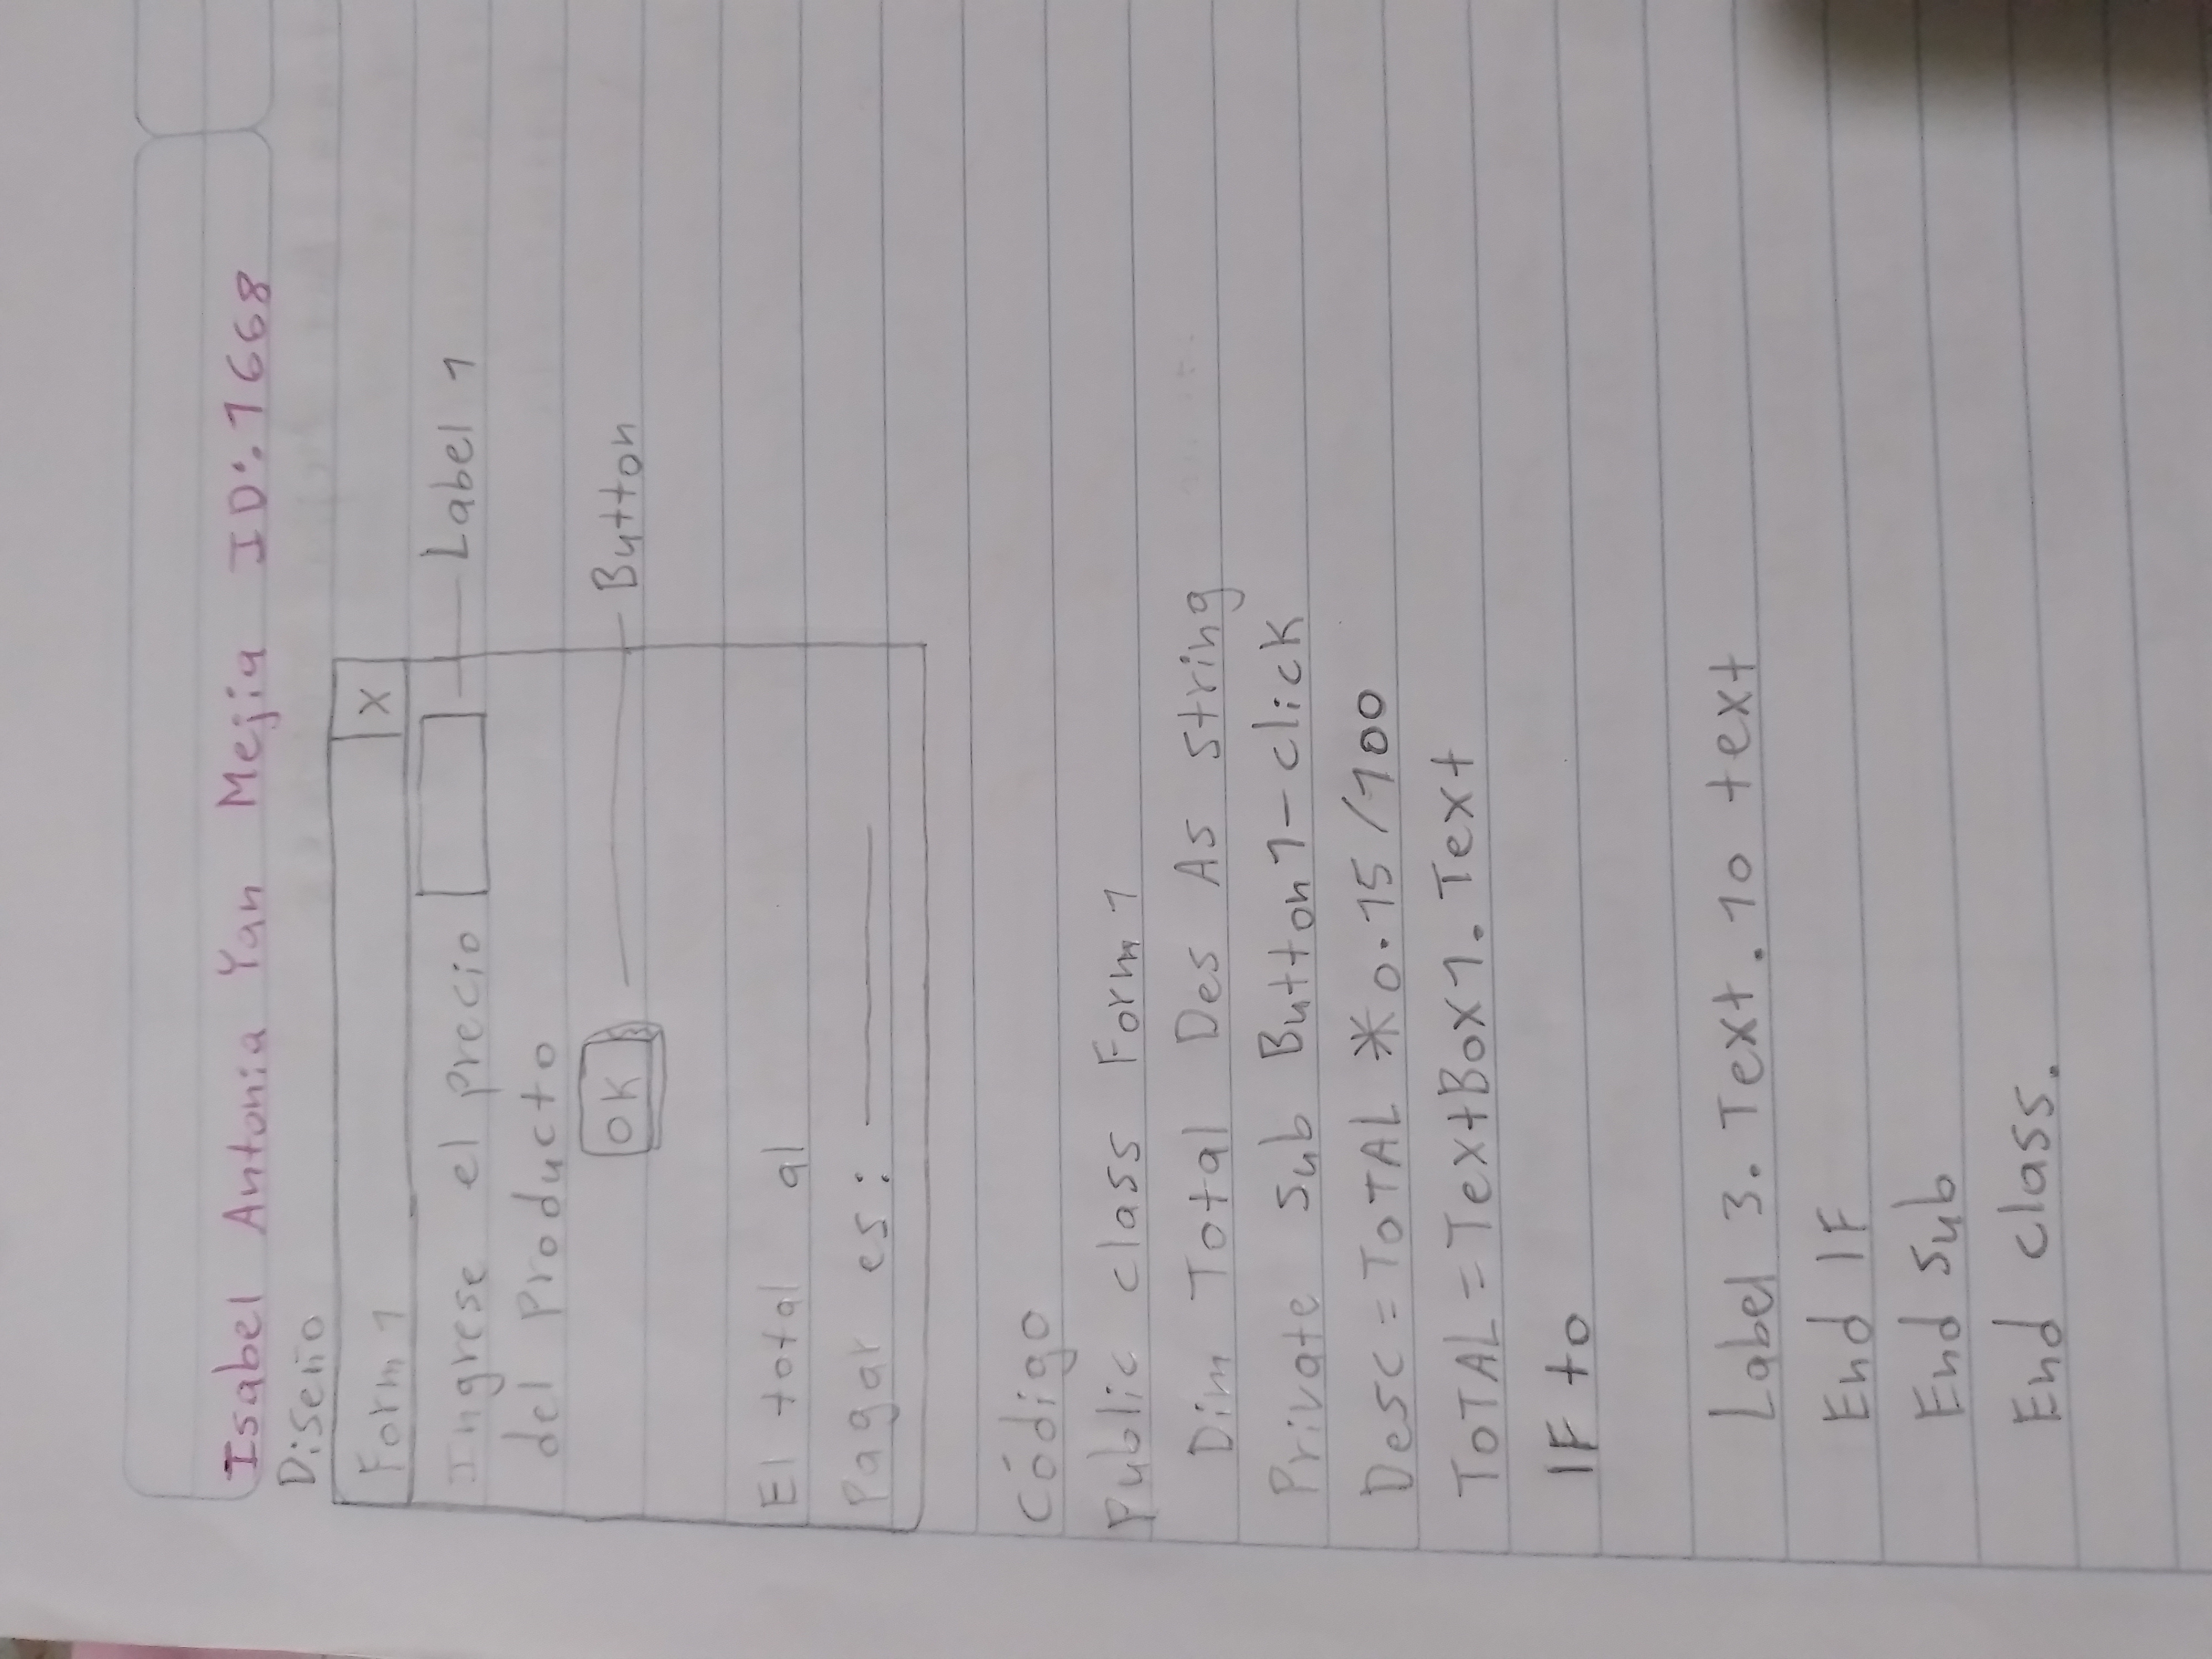 Isabel Antonia Yan Mejia ID: 1668
Diseño
Form 1 X
Ingrese el precio Label 1
del Producto
OK Button
El total al
Pagar es:
Código
Public class Form 1
Dim Total Des As string
Private sub Button1-click
Desc = ToTAL * 0.15/100
ToTAL = TextBox1.Text
IF to
Label 3. Text. 10 text
End IF
End Sub
End class.